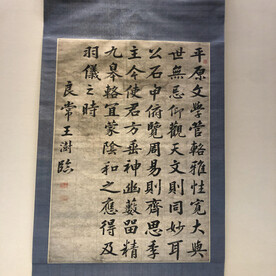 平原文學管輅雅性寬大與
世無忌仰觀天文則同妙甘
公石申俯覽周易則齊思季
主今使君方垂神幽藪留精
九皋輅宜蒙陰和之應得及
羽儀之時
良常王澍臨